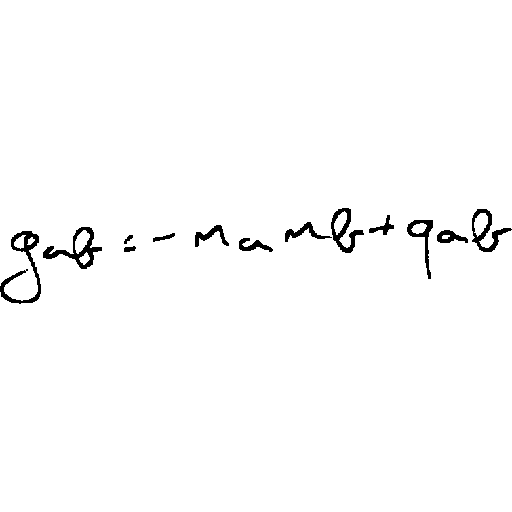 g_{ab} = -n_a n_b + q_{ab}